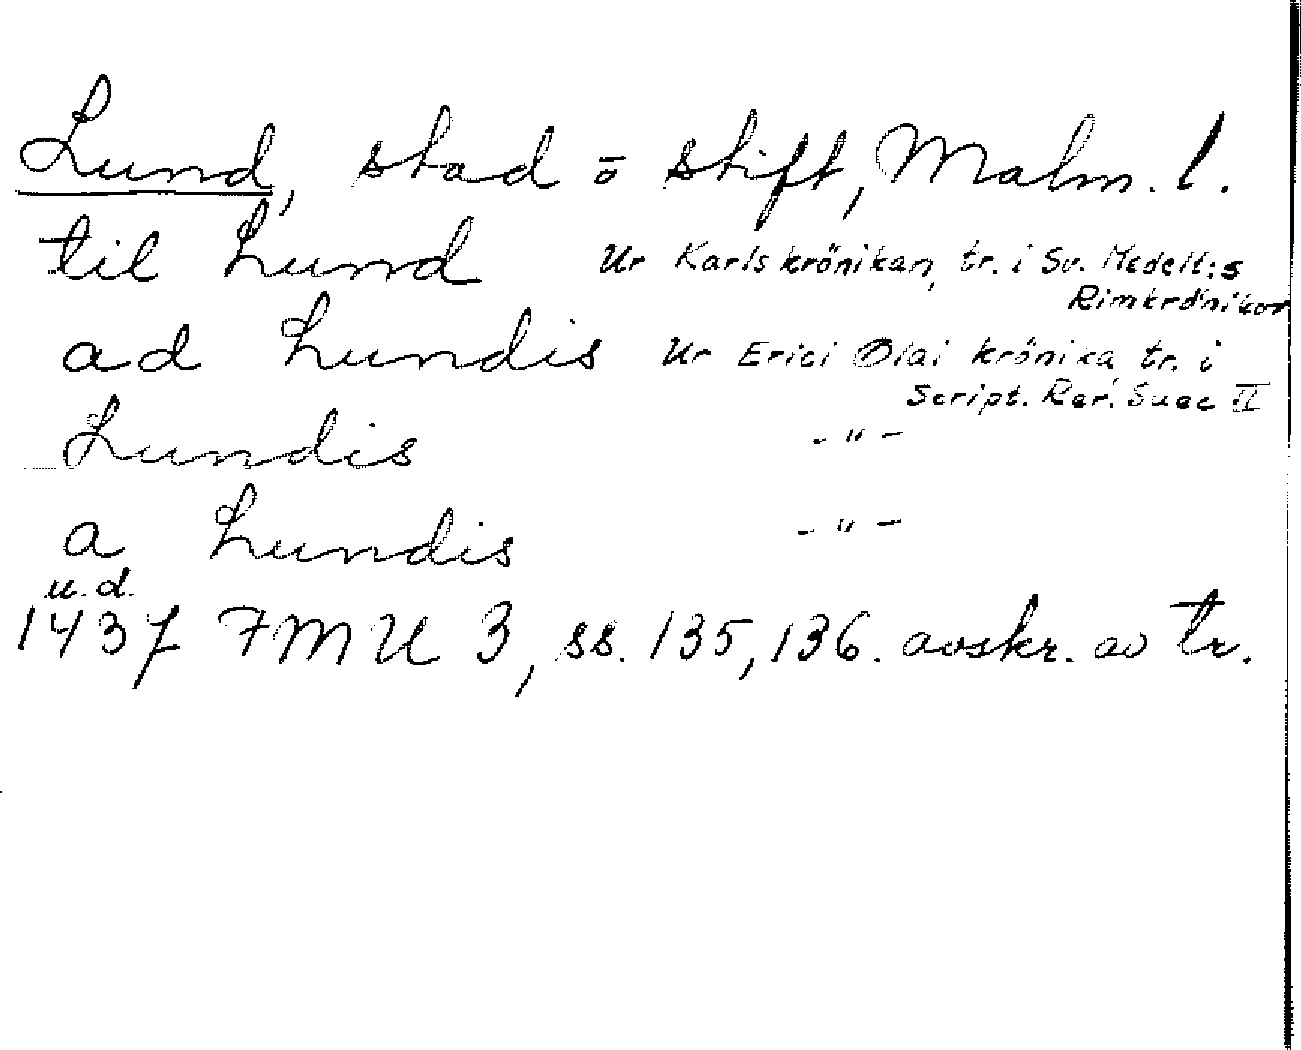 Lund, stad o stift, Malm. l.
til Lund Ur Karlskrönikan, tr. i Sv. Medelt:s
Rimkrönikor
ad Lundis Ur Erici Olai krönika tr. i
Script. Rer. Suec II
Lundis - " -
a Lundis - " -
u.d.
1437 FMU 3, ss. 135, 136. avskr. av tr.